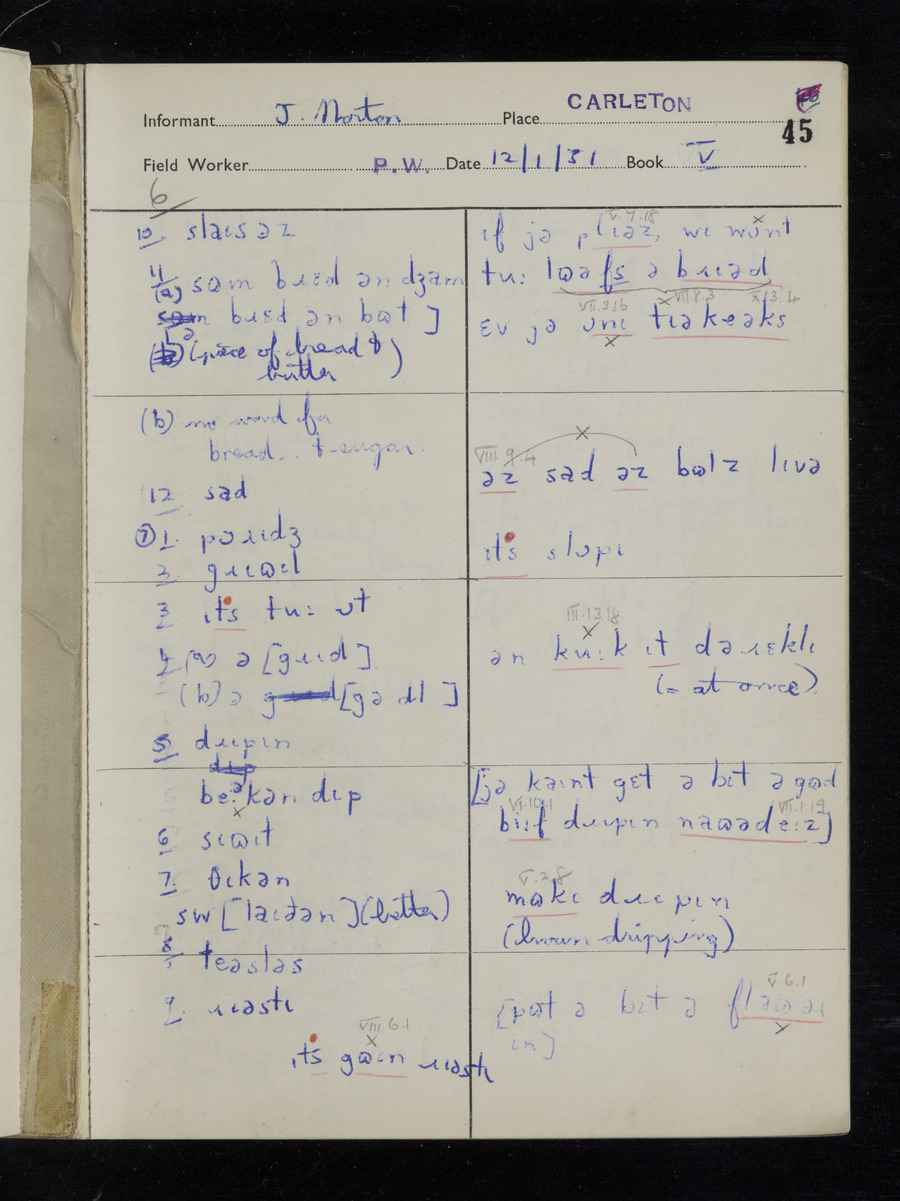 Informant J. Norton Place CARLETON
45
Field Worker P.W. Date 12/1/31 Book V
6
10 slaɪsəz
11 (a) səm bɹɛd ən dʒam
bɹɛd ən bʊt ]
(piece of bread &
butter )
(b) no word for
bread .. + sugar.
12 sad
⑦ 1. pɔɹɪdʒ
2 gɹɪʊɪl
3 ɪts tuː ɒt
4 (a) ə [gɹɪd]
(b) ə [gədl ]
5 dɹɪpɪn
beːkən dɪp
6 sɪʊɪt
7. θɪkən
sw [laɪðən] (batter)
8 teəsləs
9. ɹɪəstɪ
VIII.6.1
×
ɪts gʊɪn ɹɪəstɪ
V.7.18 ×
ɪf jə plɪəz, wɪ wɒnt
tuː lʊəfs ə bɹɪəd
VII.3.16 × VII.8.3 XI.3.4
ɛv jə ɒnɪ tɪəkeəks
×
×
VIII.9.4
əz sad əz bʊlz lɪvə
ɪts slɒpɪ
III.13.18
×
ən kuːk ɪt dəɹɛklɪ
(= at once)
[jə kaɪnt gɛt ə bɪt ə gʊd
VI.10.1 VII.1.19
bɪɪf dɹɪpɪn naʊədeːz]
V.2.8
mʊkɪ dɹɪpɪn
(brown dripping)
V.6.1
[pʊt ə bɪt ə flaʊəɹ
×
ɪn]